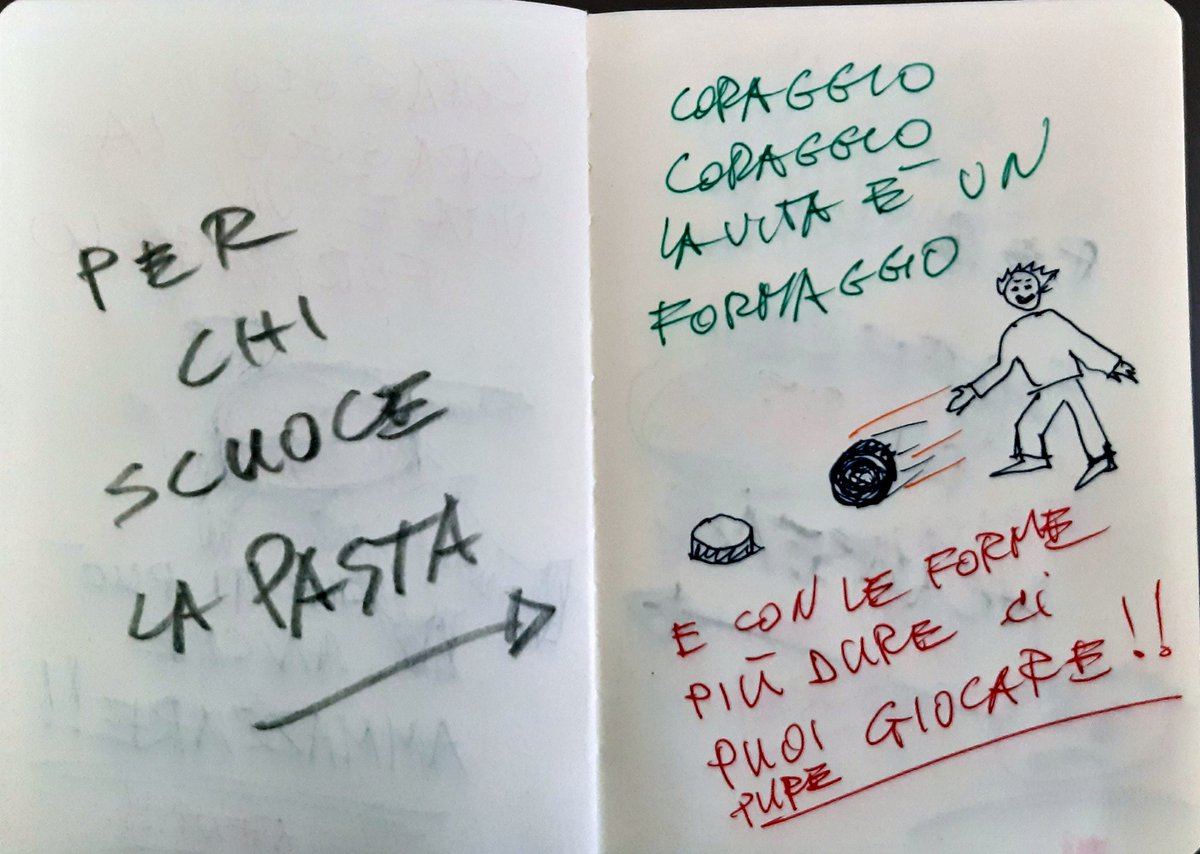 PER
CHI
SCUOCE
LA PASTA
CORAGGIO
CORAGGIO
LA VITA È UN
FORMAGGIO
E CON LE FORME
PIÙ DURE CI
PUOI GIOCARE!!
PURE